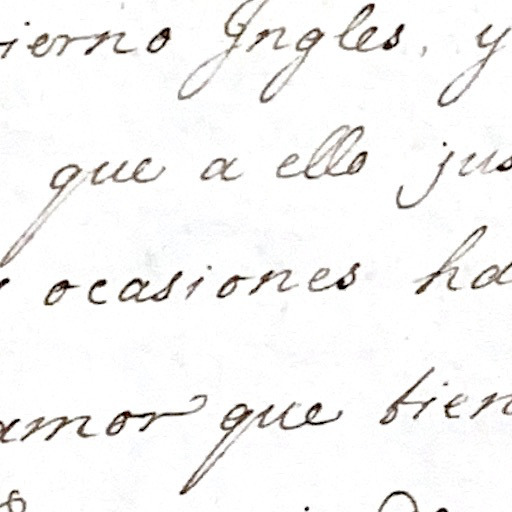 ierno Ingles, y
que a ello jus
ocasiones ha
amor que tien